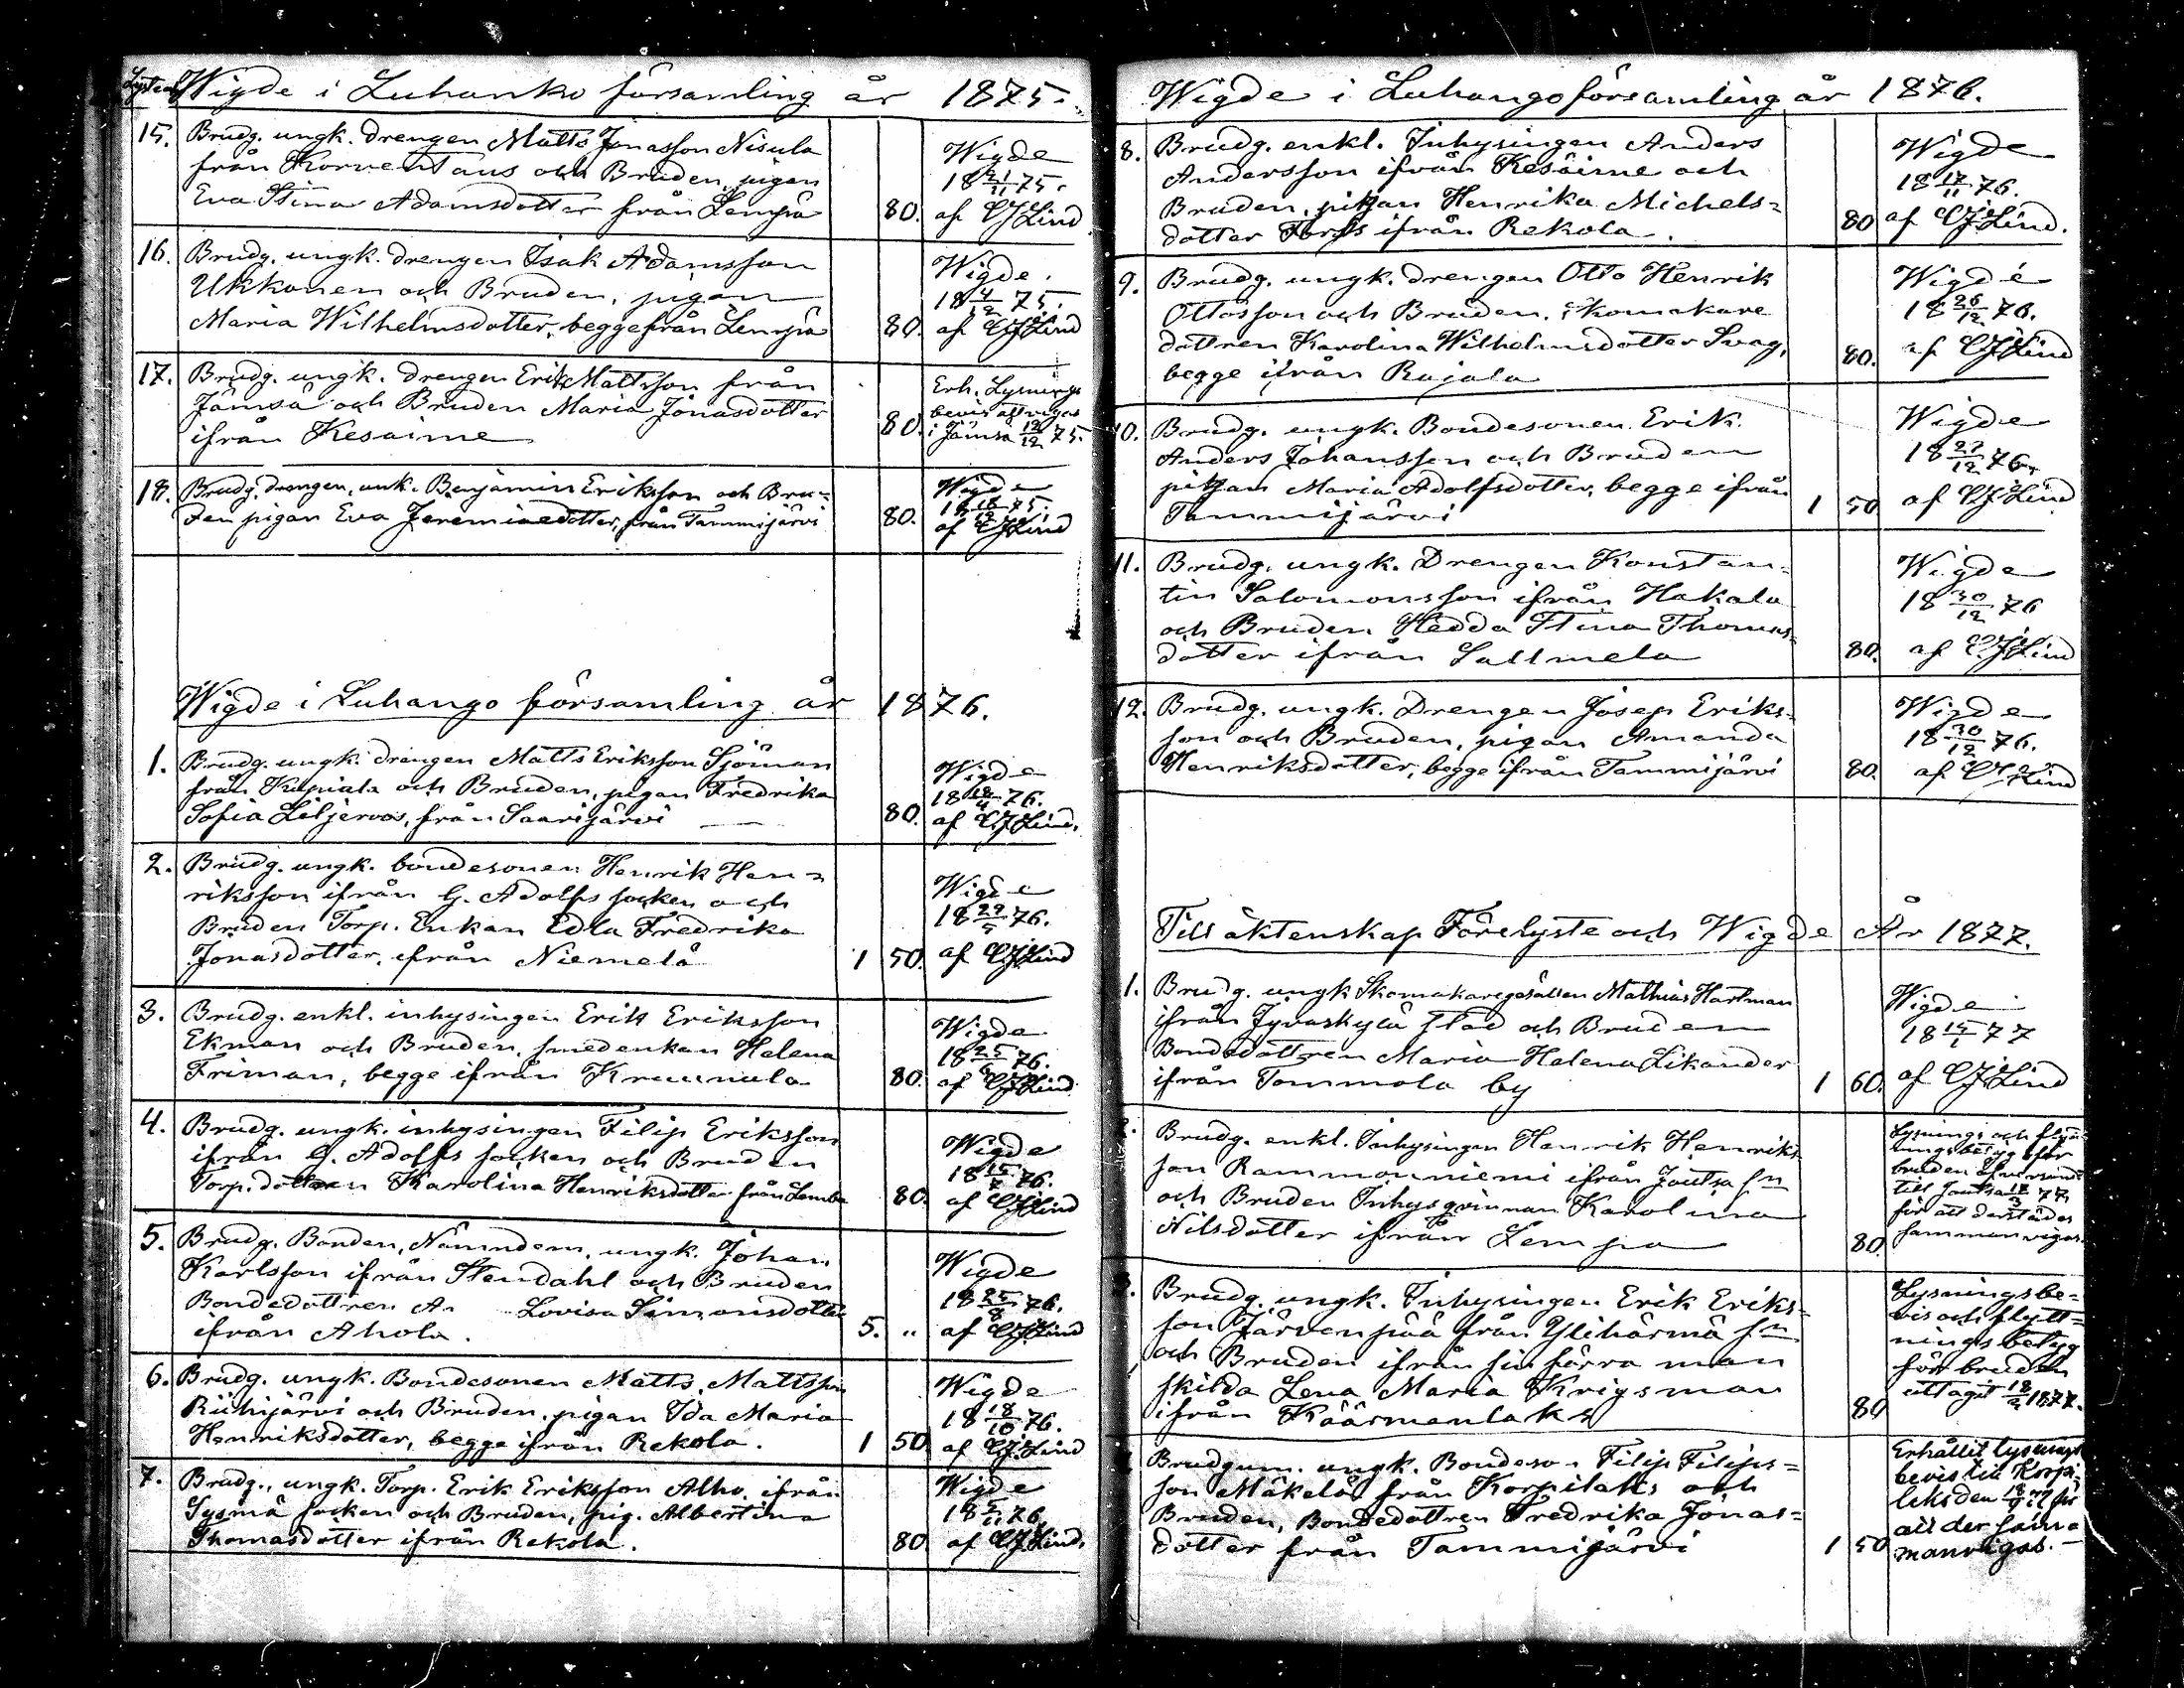 Wigde i Luhanko församling år 1875.
15. Brudg. ungk. drengen Matts Jonasson Nisula
från Korvent aus och Bruden, pigan
Eva Stina Adamsdotter från Lempä 80.
Wigde
18 21/11 75.
af CJLind
16. Brudg. ungk. drengen Isak Adamsson
Ukkonen och Bruden, pigan
Maria Wilhelmsdotter, begge från Lempä 80.
Wigde.
18 4/12 75.
af CJLind
17. Brudg. ungk. Drengen Erik Mattsson från
Jämsä och Bruden Maria Jonasdotter
ifrån Kesäime 80.
Erh. Lysnings
bevis att vigas
i Jämsä 12/12 75.
18. Brudg. drengen, unk. Benjamin Eriksson och Bru-
den pigan Eva Jeremiaedotter, från Tammijärvi 80.
Wigde
18 18/12 75.
af CJLind
Wigde i Luhango församling år 1876.
1. Brudg. ungk. drengen Matts Eriksson Sjöman
från Kupiala och Bruden, pigan Fredrika
Sofia Liljeroos, från Saarijärvi 80.
Wigde
18 18/4 76.
af CJLind.
2. Brudg. ungk. bondesonen Henrik Hen-
riksson ifrån G. Adolfs socken och
Bruden Torp. Enkan Edla Fredrika
Jonasdotter, ifrån Niemelä 1 50.
Wigde
18 22/5 76.
af CJLind
3. Brudg. enkl. inhysingen Erik Eriksson
Ekman och Bruden, smedenkan Helena
Friman, begge ifrån Kruunula 80.
Wigde
18 25/6 76.
af CJLind
4. Brudg. ungk. inhysingen Filip Eriksson
ifrån G. Adolfs socken och Bruden
Torp. dottren Karolina Henriksdotter från Lempä 80.
Wigde
18 15/7 76.
af CJLind
5. Brudg. Bonden, Nämndem. ungk. Johan
Karlsson ifrån Stendahl och Bruden
Bondedottren Lovisa Simonsdotter
ifrån Ahola. 5. "
Wigde
18 25/8 76.
af CJLind
6. Brudg. ungk. Bondesonen Matts Mattsson
Riihijärvi och Bruden, pigan Ida Maria
Henriksdotter, begge ifrån Rekola. 1 50.
Wigde
18 18/10 76.
af CJLind
7. Brudg., ungk. Torp. Erik Eriksson Alho, ifrån
Sysmä socken och Bruden, pig. Albertina
Thomasdotter ifrån Rekola. 80.
Wigde
18 5/11 76.
af CJLind.
Wigde i Luhango församling år 1876.
8. Brudg. enkl. Inhysingen Anders
Andersson ifrån Kesäime och
Bruden, pigan Henrika Michels-
dotter Fors ifrån Rekola. 80
Wigde
18 17/11 76.
af CJLind.
9. Brudg. ungk. drengen Otto Henrik
Ottosson och Bruden, skomakare
dottren Karolina Wilhelmsdotter Svag,
begge ifrån Rajala 80.
Wigde
18 26/12 76.
af CJLind
10. Brudg. ungk. Bondesonen Erik
Anders Johansson och Bruden
pigan Maria Adolfsdotter, begge ifrån
Tammijärvi 1 50
Wigde
18 27/12 76.
af CJLind
11. Brudg. ungk. Drengen Konstan-
tin Salomonsson ifrån Hakala
och Bruden Hedda Stina Thomas-
dotter ifrån Sallmela 80.
Wigde
18 30/12 76
af CJLind
12. Brudg. ungk. Drengen Josep Eriks-
son och Bruden, pigan Amanda
Henriksdotter, begge ifrån Tammijärvi 80.
Wigde
18 30/12 76.
af CJLind
Till äktenskap Förelyste och Wigde År 1877.
1. Brudg. ungk Skomakaregesällen Mathias Hartman
ifrån Jyväskylä Stad och Bruden
Bondedottren Maria Helena Likander
ifrån Tommola by 1 60.
Wigde
18 15/1 77
af CJLind
2. Brudg. enkl. Inhysingen Henrik Henriks-
son Rammonniemi ifrån Joutsa sn
och Bruden Inhysqvinnan Karolina
Nilsdotter ifrån Lempä 80
Lysnings och flytt-
ningsbetyg för
bruden
till Joutsa 77
för att derstädes
sammanvigas.
3. Brudg. ungk. Inhysingen Erik Eriks-
son Järvenpää från Ylihärmä sn
och Bruden ifrån sin förra man
skilda Lena Maria Krigsman
ifrån Käärmenlaks 80
Lysningsbe-
vis och flytt-
nings betyg
för bruden
uttagit 18/2 1877.
4. Brudgum. ungk. Bondeson Filip Filips-
son Mäkelä från Korpilaks och
Bruden, Bondedottren Fredrika Jonas-
dotter från Tammijärvi 1 50
Erhållit lysnings
bevis till Korpi-
laks den 77 för
att der sam-
manvigas.